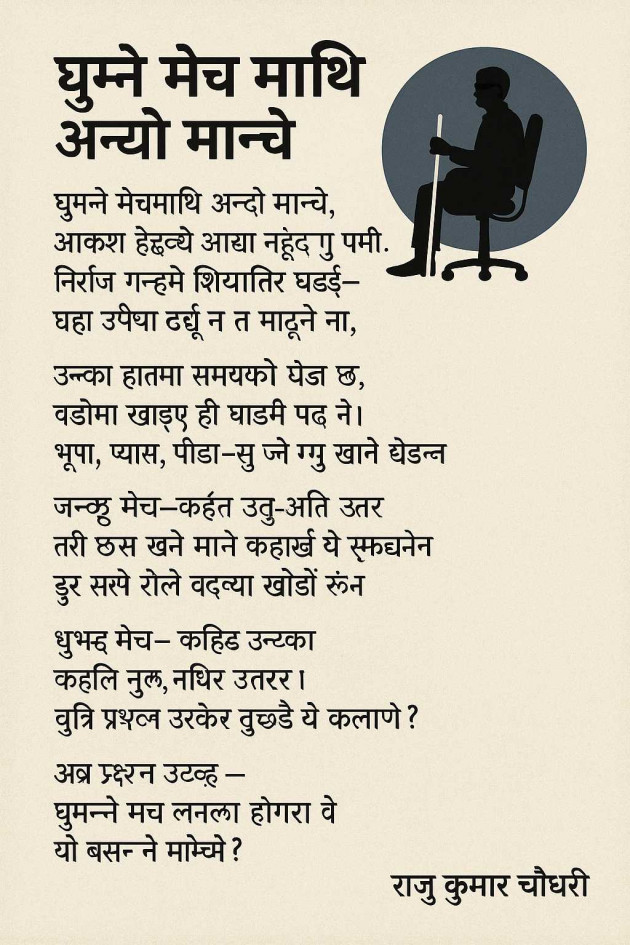 घुम्ने मेच माथि
अन्यो मान्चे
घुमन्ने मेचमाथि अन्दो मान्चे,
आकश हेद्दव्थे आद्या नहूंद गु पमी.
निर्राज गन्हमे शियातिर घडई–
घहा उपेथा ढर्द्यू न त माटूने ना,
उन्का हातमा समयको पेज छ,
वडोमा खाड्ए ही घाडमी पढ ने।
भूपा, प्यास, पीडा–सु ज्ने ग्गु खाने द्येडन्न
मेच–कर्हंत उवु-अति उतर
तरी छस खने माने कहार्ख ये
डुर सस्पे रोले वदव्या खोडों रूंन
मेच– कहिड उन्टका
कहलि नुल, नधिर उतरर।
वुत्रि उरकेर वुछडै ये कलाणे?
अब्र उटव्ह –
घुमन्ने मच लनला होगरा वे
यो बसन ने माम्च्मे?
राजु कुमार चौधरी